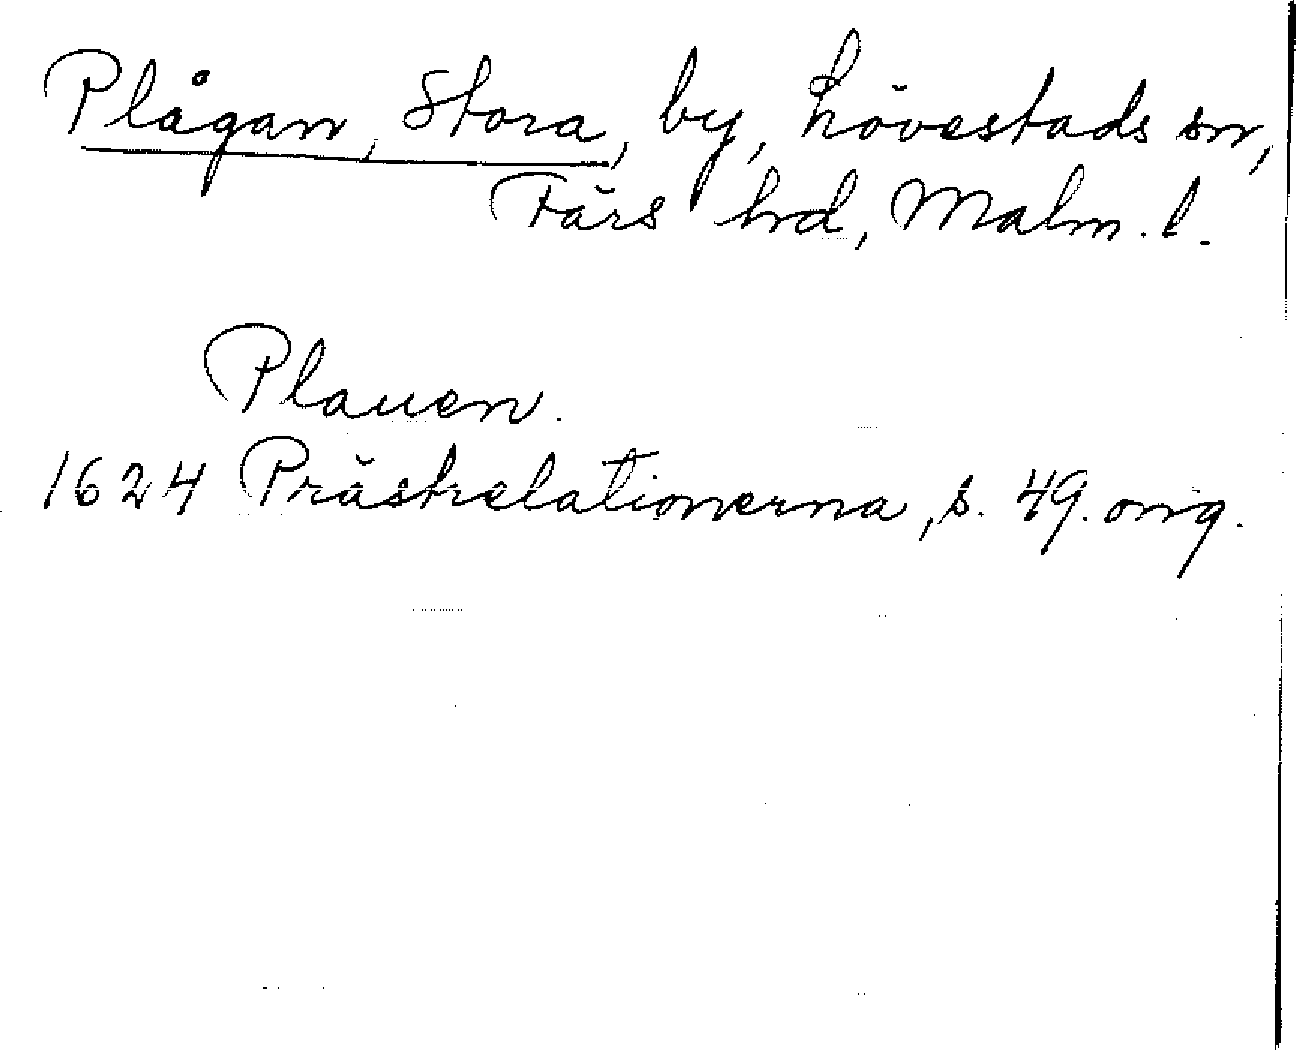 Plågan, Stora, by, Lövestads sn,
Färs hrd, Malm. l.
Plauen.
1624 Prästrelationerna, s. 49. orig.